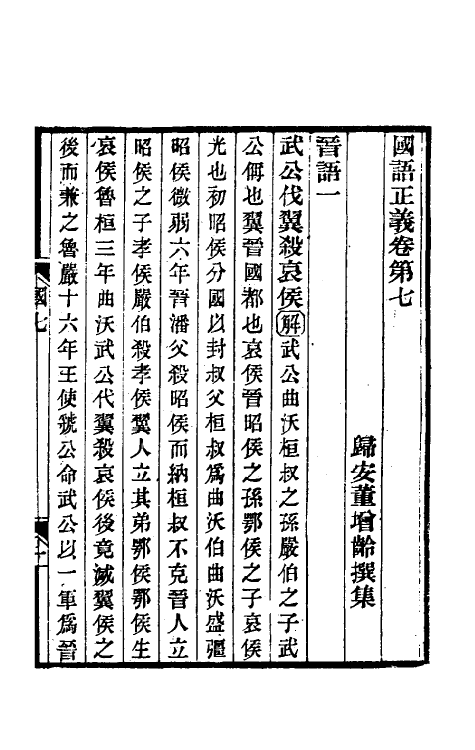 國語正義卷第七
歸安董增齡撰集
晉語一
武公伐翼殺哀侯解武公曲沃桓叔之孫嚴伯之子武
公侮也翼晉國都也哀侯晉昭侯之孫鄂侯之子哀侯
光也初昭侯分國以封叔父桓叔爲曲沃伯曲沃盛彊
昭侯微弱六年晉潘父殺昭侯而納桓叔不克晉人立
昭侯之子孝侯嚴伯殺孝侯翼人立其弟鄂侯鄂侯生
哀侯魯桓三年曲沃武公伐翼殺哀侯後竟滅翼侯之
後而兼之魯嚴十六年王使虢公命武公以一軍爲晉
國七
一